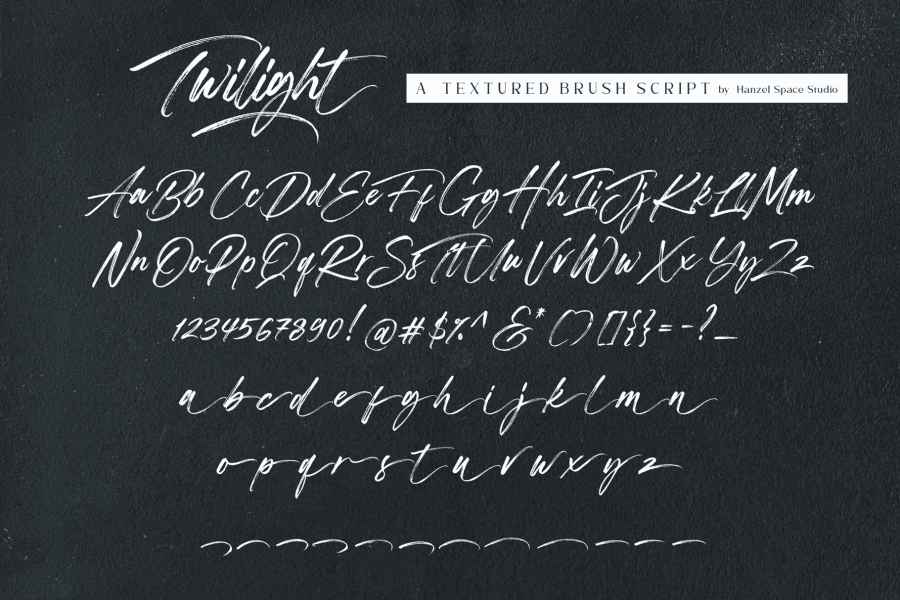 Twilight
A TEXTURED BRUSH SCRIPT by Hanzel Space Studio
Aa Bb Cc Dd Ee Ff Gg Hh Ii Jj Kk Ll Mm
Nn Oo Pp Qq Rr Ss Tt Uu Vv Ww Xx Yy Zz
1234567890! @#$%^ &* () [] {} = - ? _
a b c d e f g h i j k l m n
o p q r s t u v w x y z